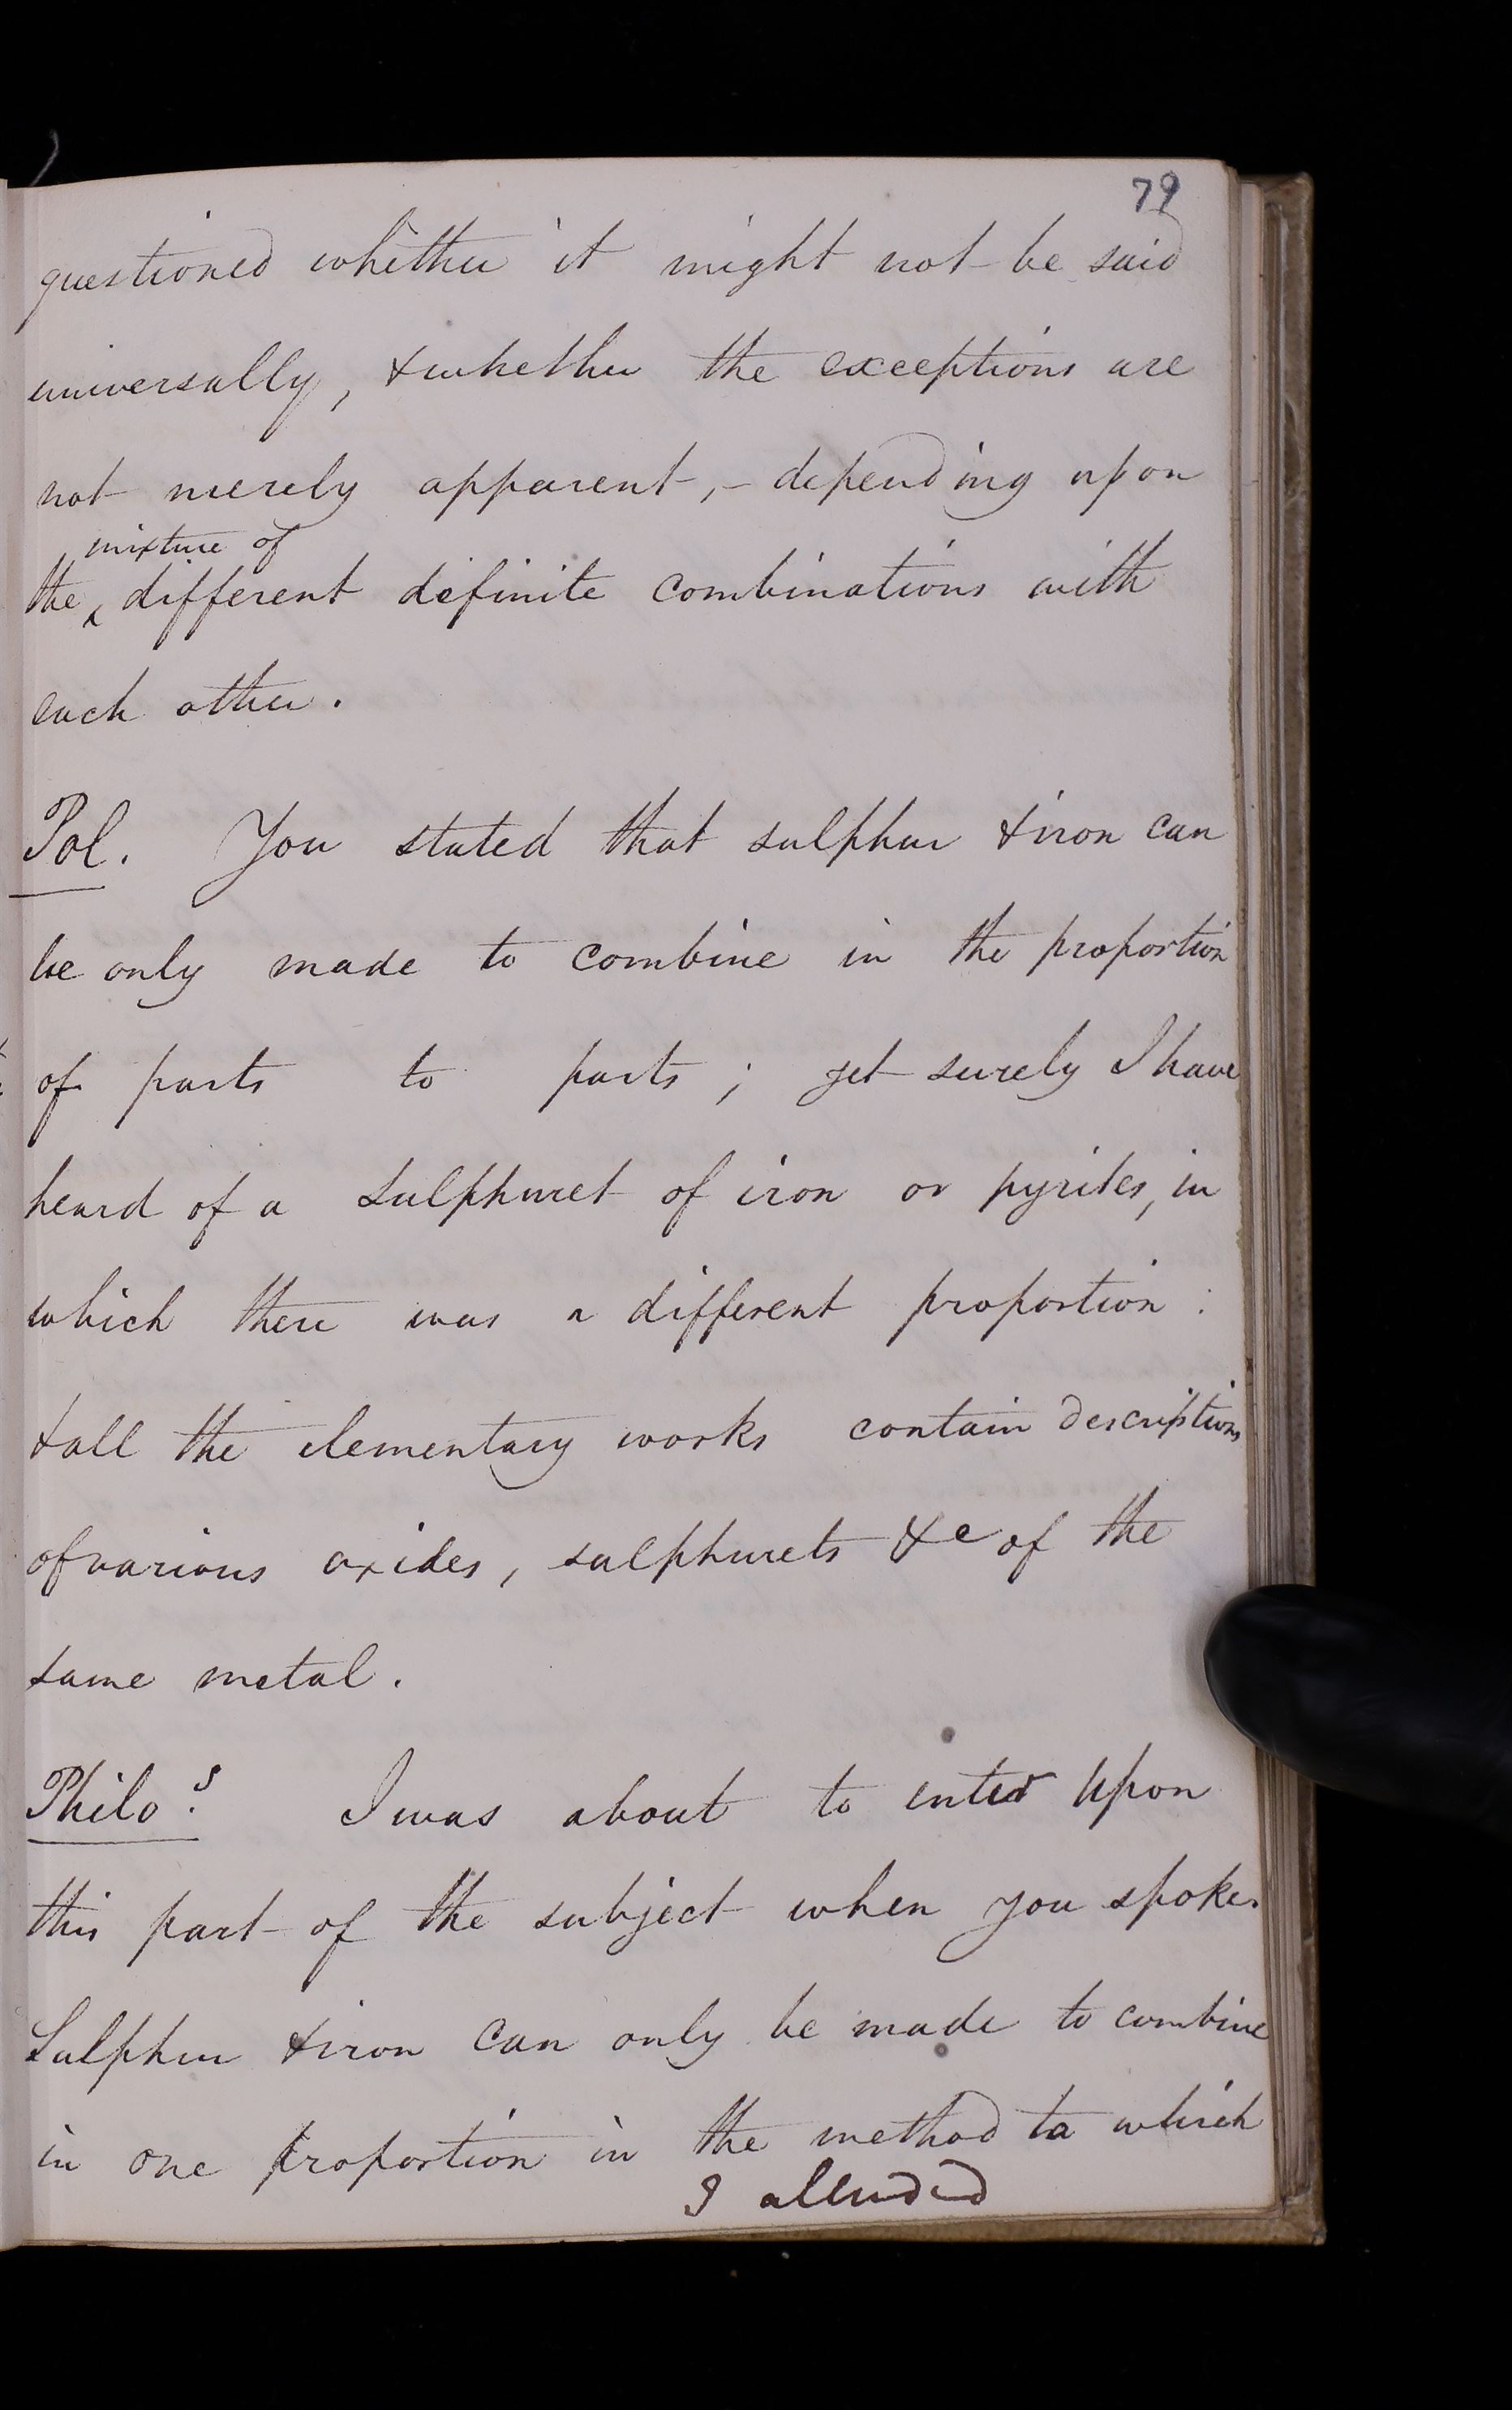 79
questioned whether it might not be said
universally, & whether the exceptions are
not merely apparent, - depending upon
mixture of
the ‸ different definite combinations with
each other.
Pol. You stated that sulphur & iron can
be only made to combine in the proportion
of parts to parts ; yet surely I have
heard of a sulphuret of iron or pyrites, in
which there was a different proportion :
& all the elementary works contain descriptions
of various oxides, sulphurets &c of the
same metal.
Philos. I was about to enter upon
this part of the subject when you spoke.
Sulphur & iron can only be made to combine
in one proportion in the method to which
I alluded